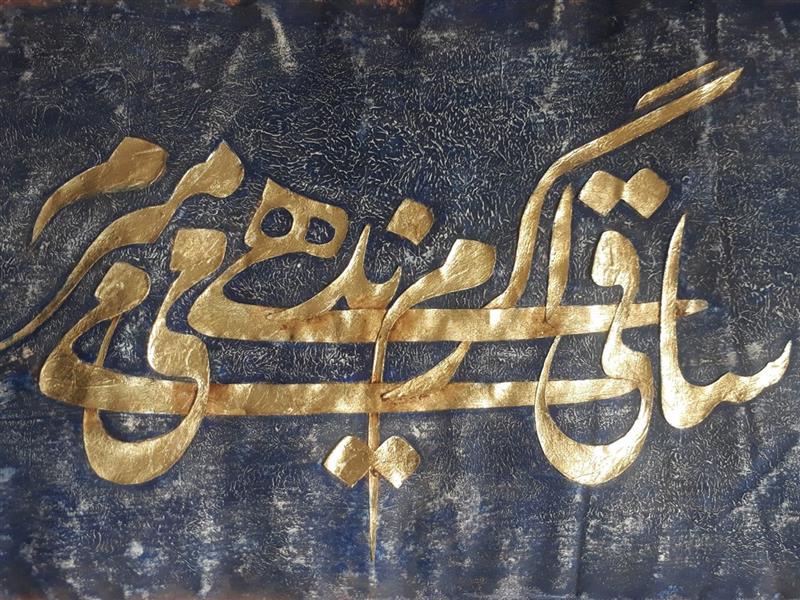 ساقی اگرم می ندهی می میرم